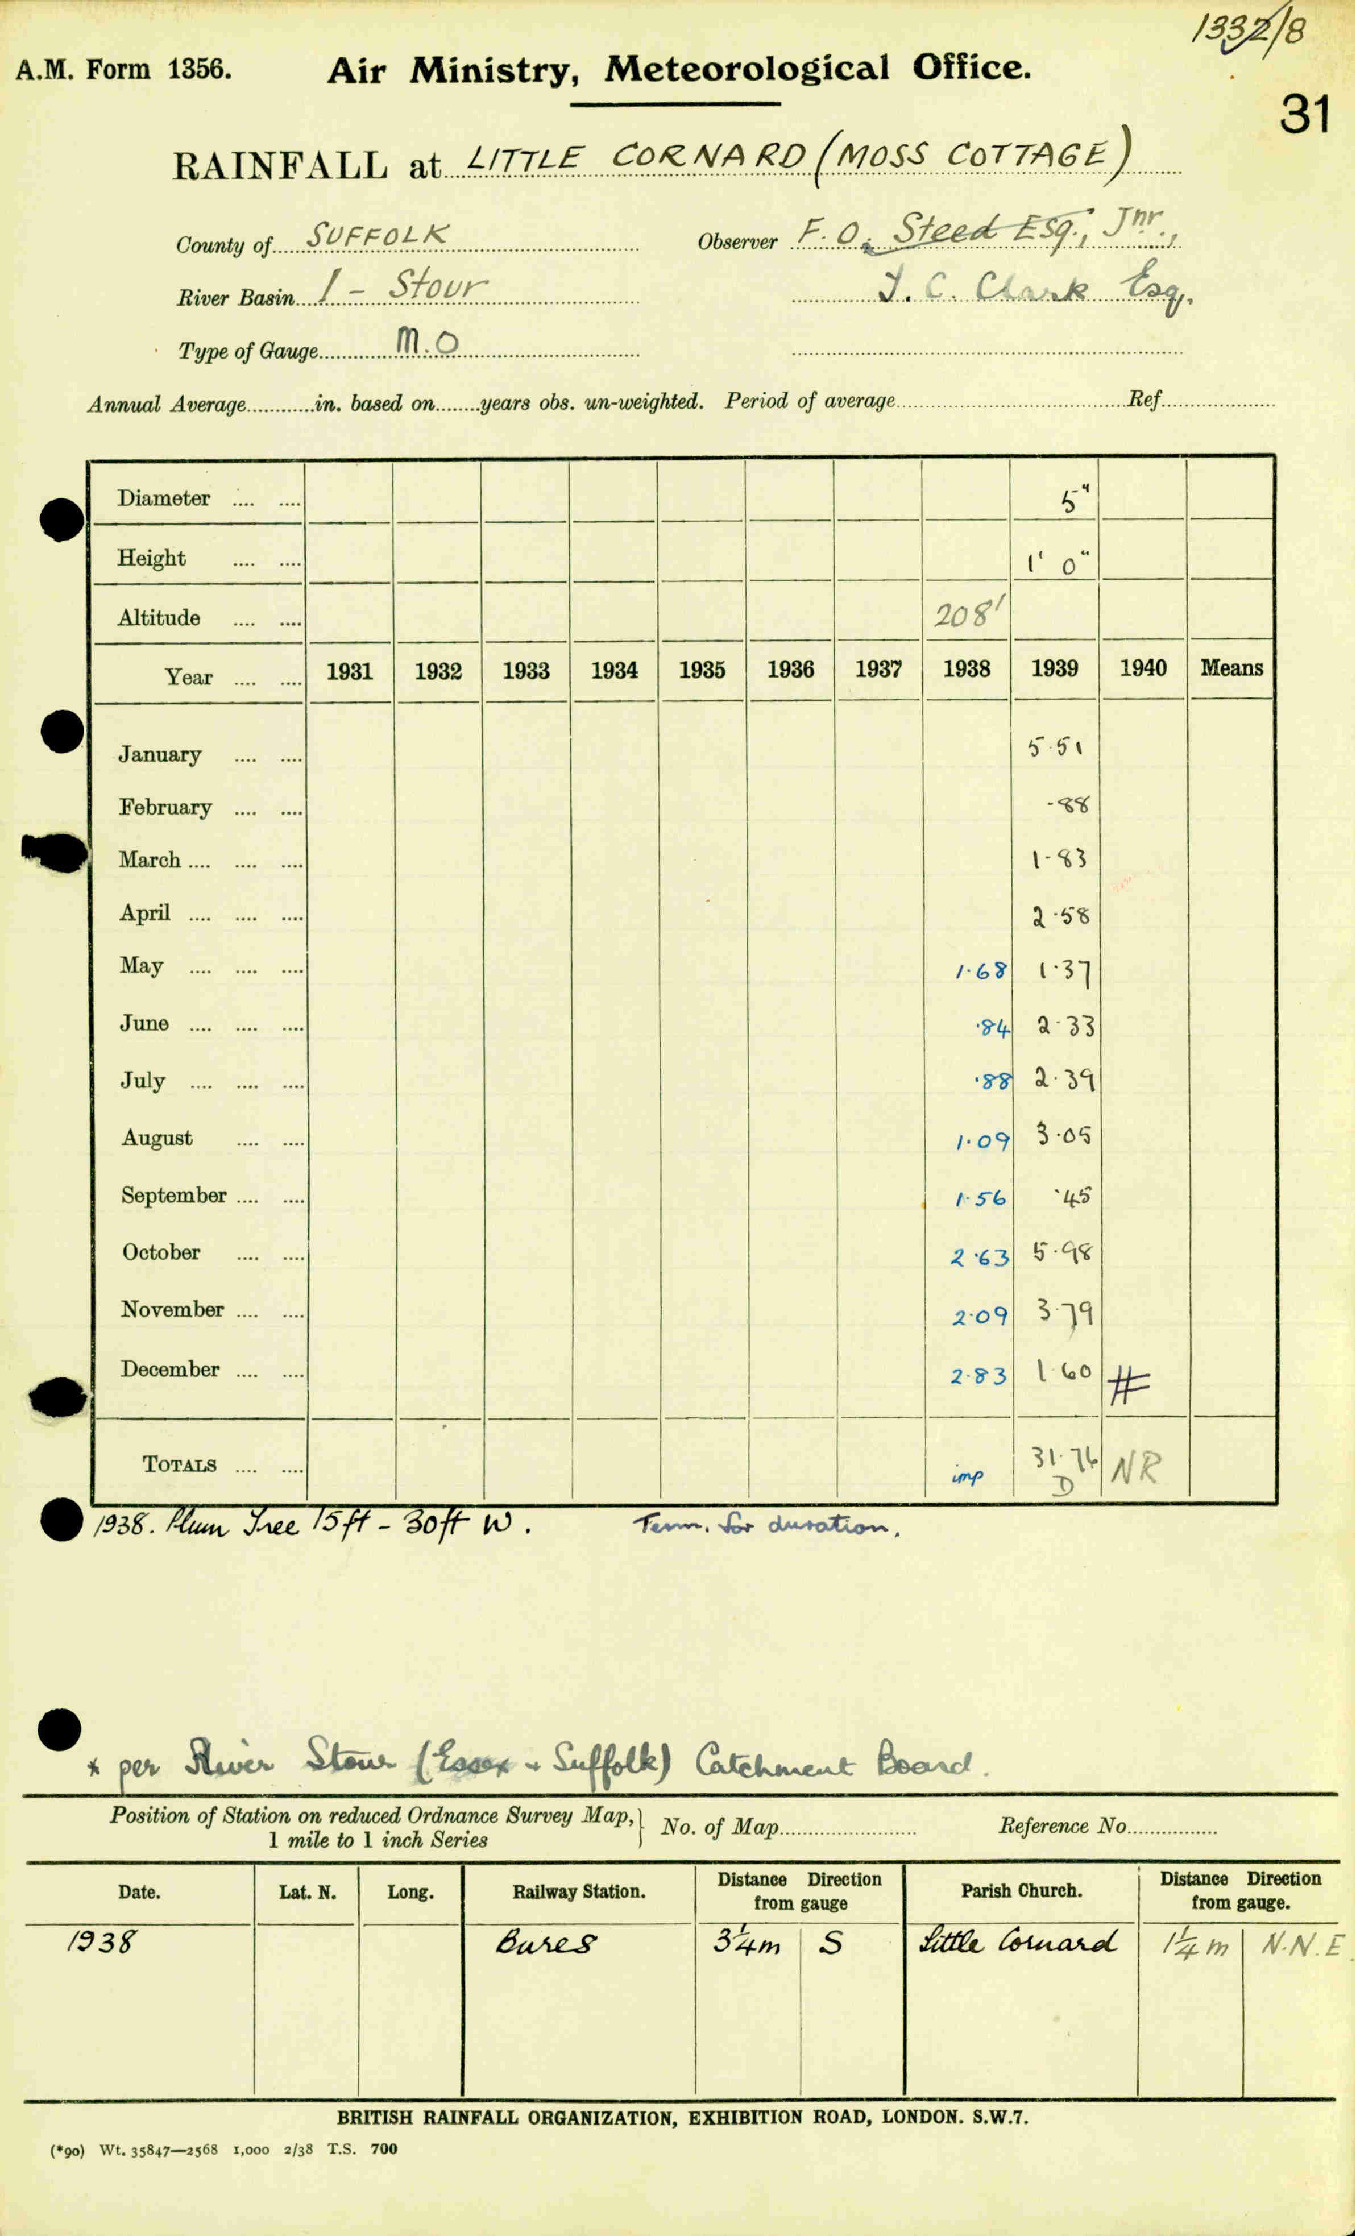 1332/8
A.M. Form 1356. Air Ministry, Meteorological Office.
31
RAINFALL at LITTLE CORNARD (MOSS COTTAGE)
County of SUFFOLK Observer F. O. Steed Esq., Jnr.,
River Basin 1 - Stour T. C. Clark Esq.
Type of Gauge M.O
Annual Average............in. based on........years obs. un-weighted. Period of average.................... Ref....................
Diameter .... .... 5"
Height .... .... 1' 0"
Altitude .... .... 208'
Year .... .... 1931 1932 1933 1934 1935 1936 1937 1938 1939 1940 Means
January .... .... 5.51
February .... .... .88
March .... .... .... 1.83
April .... .... .... 2.58
May .... .... .... 1.68 1.37
June .... .... .... .84 2.33
July .... .... .... .88 2.39
August .... .... 1.09 3.05
September .... .... 1.56 .45
October .... .... 2.63 5.98
November .... .... 2.09 3.79
December .... .... 2.83 1.60 #
TOTALS .... .... imp 31.76 NR
D
1938. Plum Tree 15ft - 30ft W. Term. for duration.
* per River Stour (Essex + Suffolk) Catchment Board.
Position of Station on reduced Ordnance Survey Map, No. of Map.................... Reference No................
1 mile to 1 inch Series
Date. Lat. N. Long. Railway Station. Distance Direction from gauge Parish Church. Distance Direction from gauge.
1938 Bures 3¼m S Little Cornard 1¼m N.N.E
BRITISH RAINFALL ORGANIZATION, EXHIBITION ROAD, LONDON. S.W.7.
(*90) Wt. 35847—2568 1,000 2/38 T.S. 700